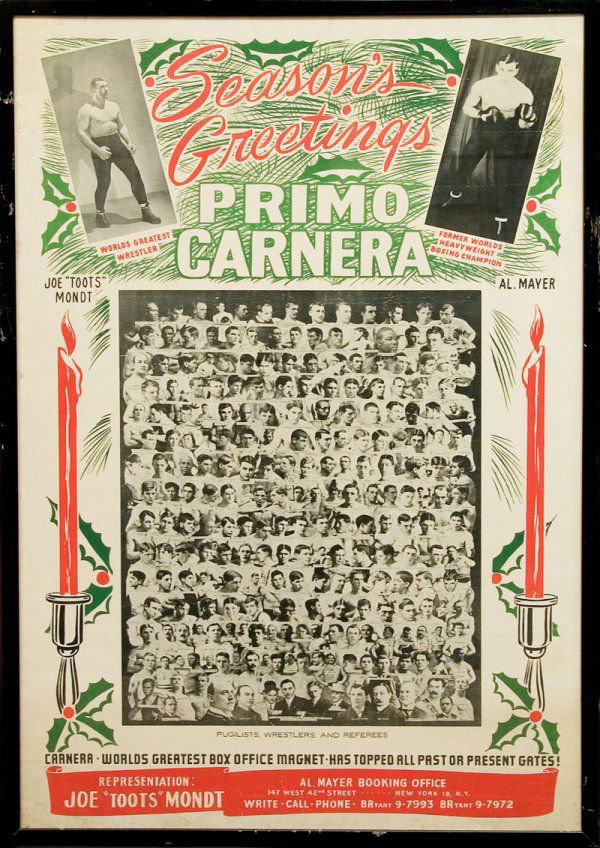 Season's
Greetings
PRIMO
CARNERA
WORLDS GREATEST
WRESTLER
FORMER WORLDS
HEAVYWEIGHT
BOXING CHAMPION
JOE "TOOTS"
MONDT
AL. MAYER
PUGILISTS, WRESTLERS, AND REFEREES
CARNERA · WORLDS GREATEST BOX OFFICE MAGNET · HAS TOPPED ALL PAST OR PRESENT GATES!
REPRESENTATION:
JOE "TOOTS" MONDT
AL. MAYER BOOKING OFFICE
147 WEST 42ND STREET · · · · · · NEW YORK 18, N.Y.
WRITE - CALL - PHONE - BRYANT 9-7993 BRYANT 9-7972